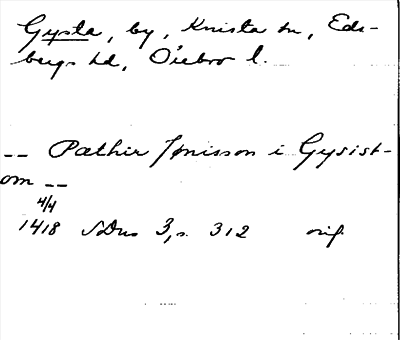 Gysta, by, Knista sn, Eds-
bergs hd, Örebro l.
-- Pæthir Jønisson i Gysist-
om --
4/4
1418 SDns 3, s. 312 orig.